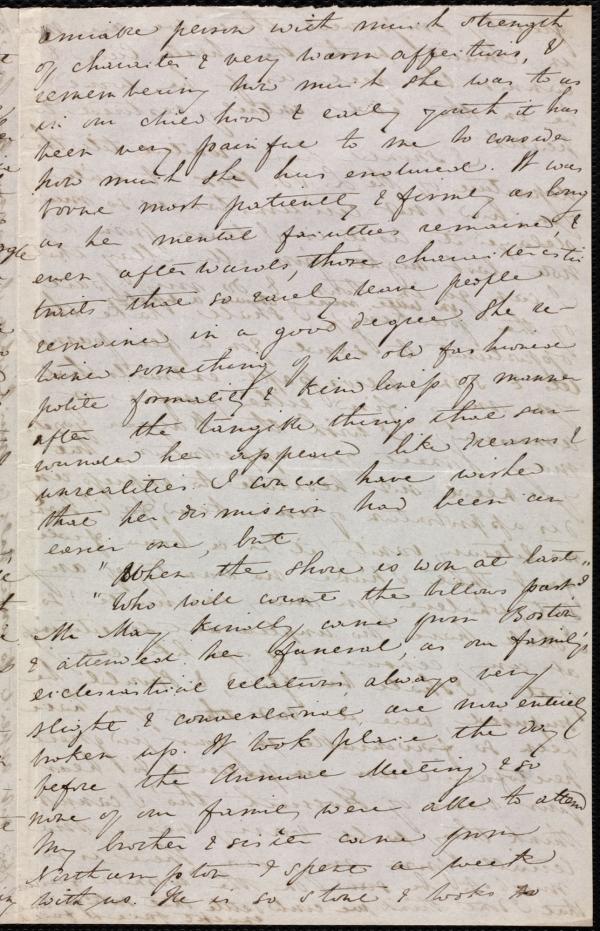 amiable person with much strength
of character & very warm affections, &
remembering how much she was to us
in our childhood & early youth it has
been very painful to me to consider
how much she has endured. It was
borne most patiently & firmly as long
as her mental faculties remained, &
even afterwards, those characteristic
traits that so rarely leave people
remained in a good degree. She re-
tained something of her old fashioned
polite formality & kindliness of manner
after the tangible things that sur-
rounded her appeared like dreams &
unrealities. I could have wished
that her dismission had been an
easier one, but
"When the shore is won at last"
"Who will count the billows past?
Mr May kindly came from Boston
& attended her funeral, as our family's
ecclesiastical relations, always very
slight & conventional are now entirely
broken up. It took place the day
before the Annual Meeting & so
none of our family were able to attend
My brother & sister came from
Northampton & spent a week
with us. He is so stout & looks so